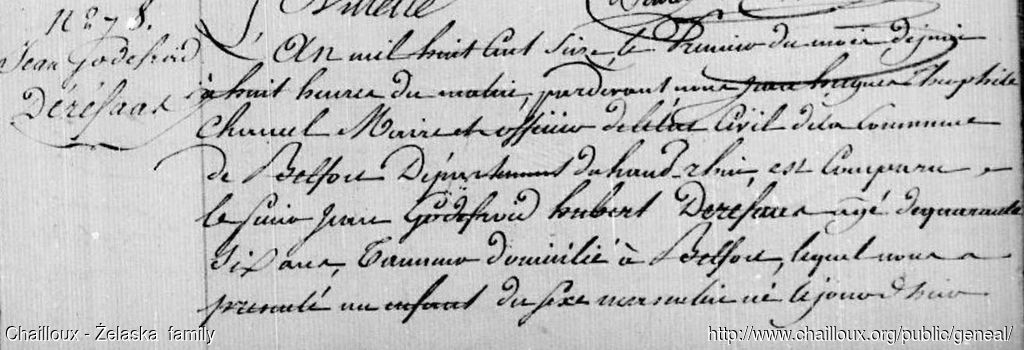 N° 78.
Jean Godefroid
Déresaas
An mil huit cent seize, le Premier du mois de juin
à huit heures du matin, pardevant nous jean hugues Theophile
Chanuel Maire et officier de l'état Civil de la Commune
de Belfort Département du haut-rhin, est Comparu
le sieur Jean Godefroid hubert Deresaas agé de quarante
Six ans, Tanneur domicilié à Belfort, lequel nous a
presenté un enfant du sexe masculin né le jour d'hier
Chailloux - Żelaska family
http://www.chailloux.org/public/geneal/